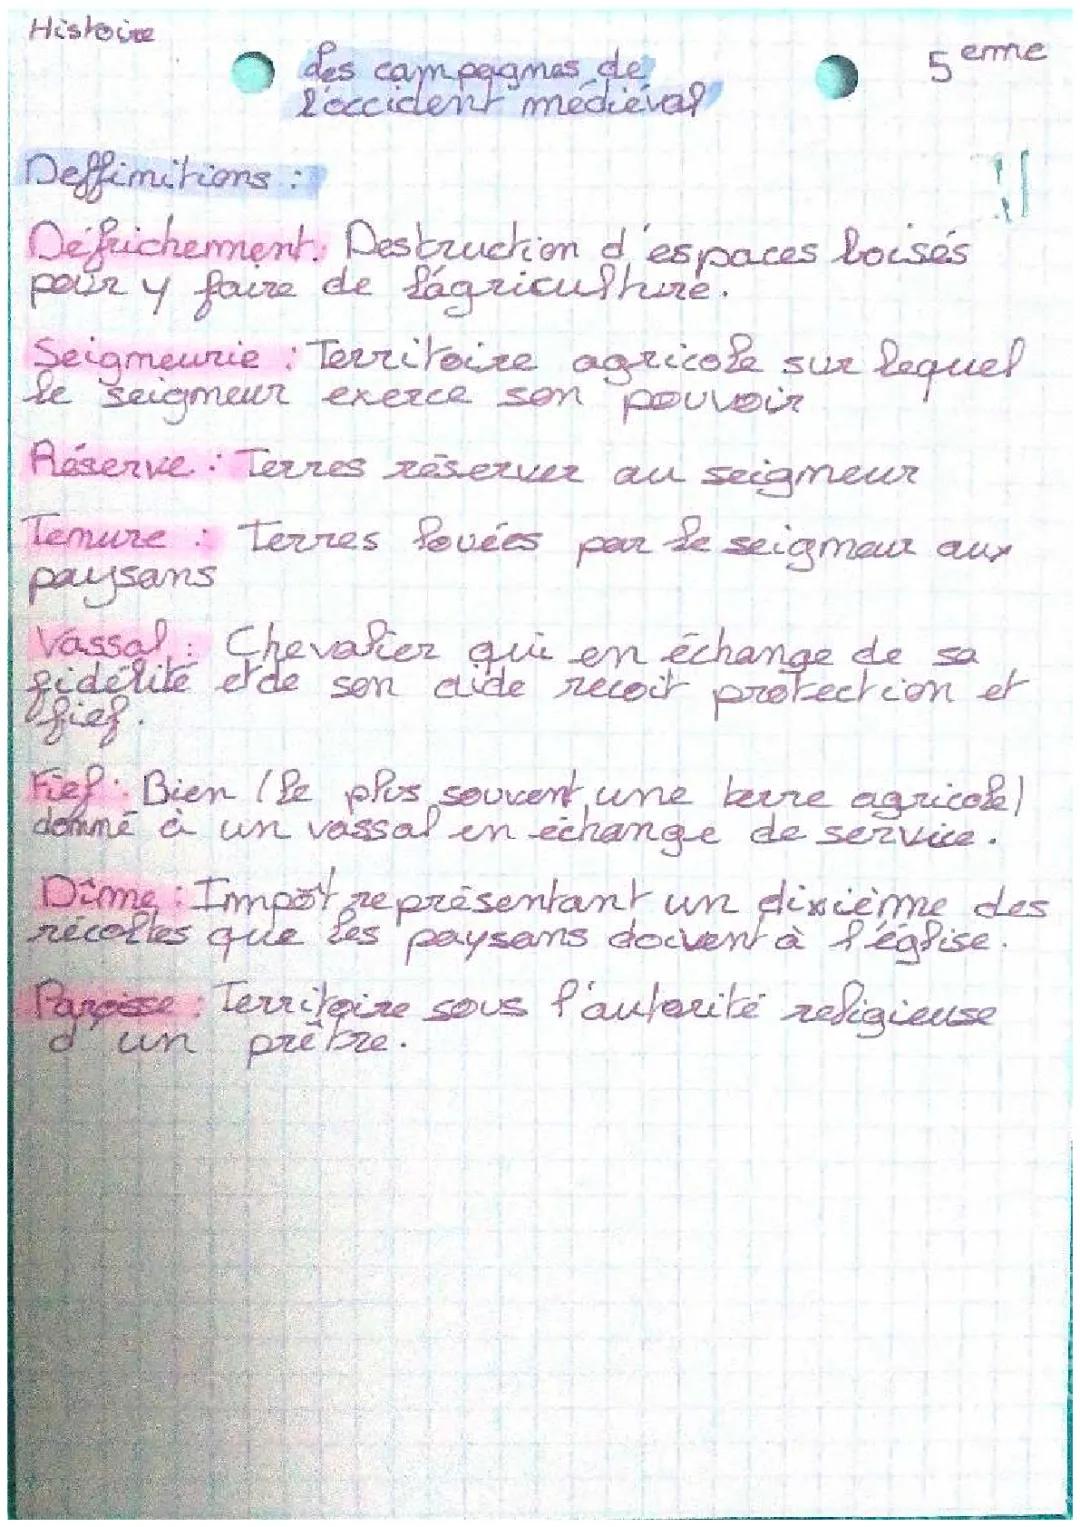 Histoire
Les campagnes de
l'occident médiéval
5 eme
Deffinitions :
Défrichement : Destruction d'espaces boisés
pour y faire de l'agriculture.
Seigneurie : Territoire agricole sur lequel
le seigneur exerce son pouvoir
Réserve : Terres réserver au seigneur
Tenure : Terres louées par le seigneur aux
paysans
Vassal : Chevalier qui en échange de sa
fidélité et de son aide recoit protection et
fief.
Fief : Bien (le plus souvent une terre agricole)
donné à un vassal en échange de service.
Dîme : Impôt représentant un dixième des
récoltes que les paysans doivent à l'église.
Paroisse : Territoire sous l'autorité religieuse
d'un prêtre.